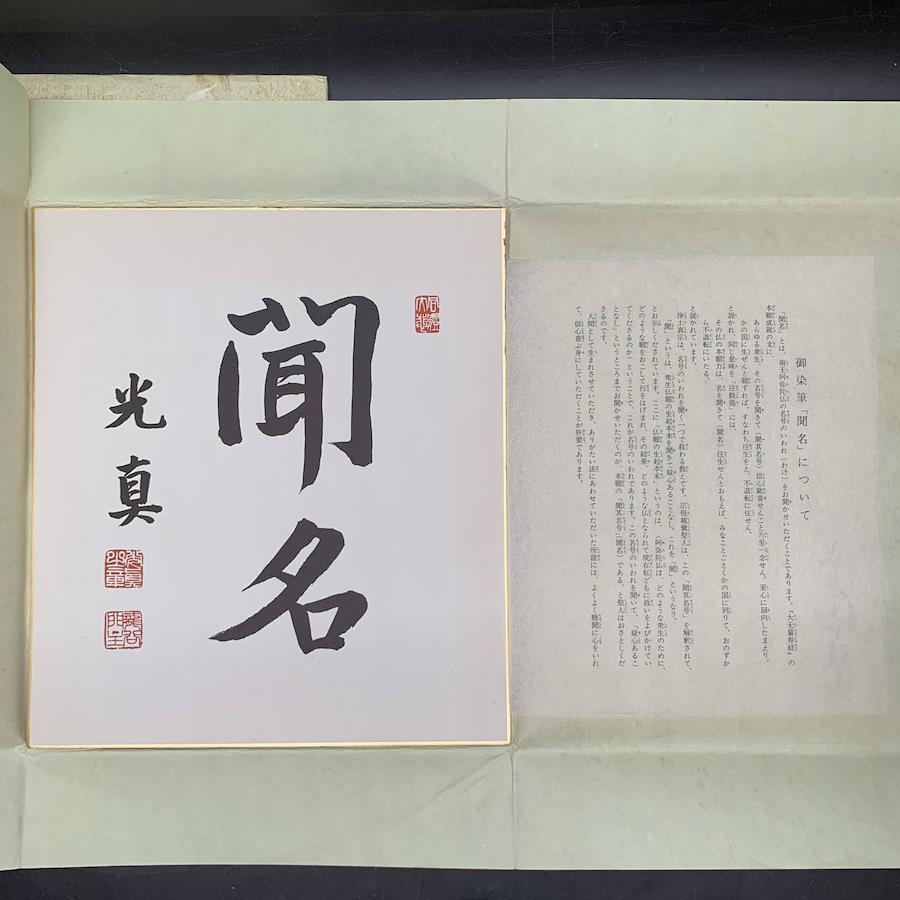 御染筆「聞名」について
「聞名」とは、南无阿弥陀仏の名号のいわれ（わけ）をお聞かせいただくことであります。『大无量寿経』の
本願成就の文に、
あらゆる衆生、その名号を聞きて（聞其名号）信心歓喜せんこと乃至一念せん。至心に回向したまえり。
かの国に生ぜんと願ずれば、すなわち往生をえ、不退転に住せん。
と説かれ、同じ意味を「往覲偈」には、
その仏の本願力は、名を聞きて（聞名）往生せんとおもえば、みなことごとくかの国に到りて、おのずか
ら不退転にいたる。
と説かれています。
浄土真宗は、名号のいわれを聞く一つで救わる教えです。宗祖親鸞聖人は、この「聞其名号」を解釈されて、
「聞」というは、衆生仏願の生起本末を聞きて疑心あることなし、これを「聞」というなり。
とお示しくだされています。ここに「仏願の生起本末」というのは、阿弥陀仏は、どのような衆生のために、
どのような願をおこして行をはげまれ、その結果、どのような仏となられて現在私どもに救いをよびかけてい
てくださるのか）ということで、これが名号のいわれであります。この名号のいわれを聞いて、「疑心あるこ
となし」というところまでお聞かせいただくのが、本願の「聞其名号」（聞名）である、と聖人はおさとしくだ
さるのです。
人間として生まれさせていただき、ありがたい法にあわせていただいた所詮には、よくよく聴聞に心をいれ
て、信心喜ぶ身にしていただくことが肝要であります。
聞名
光真
光真之章
龍谷門主